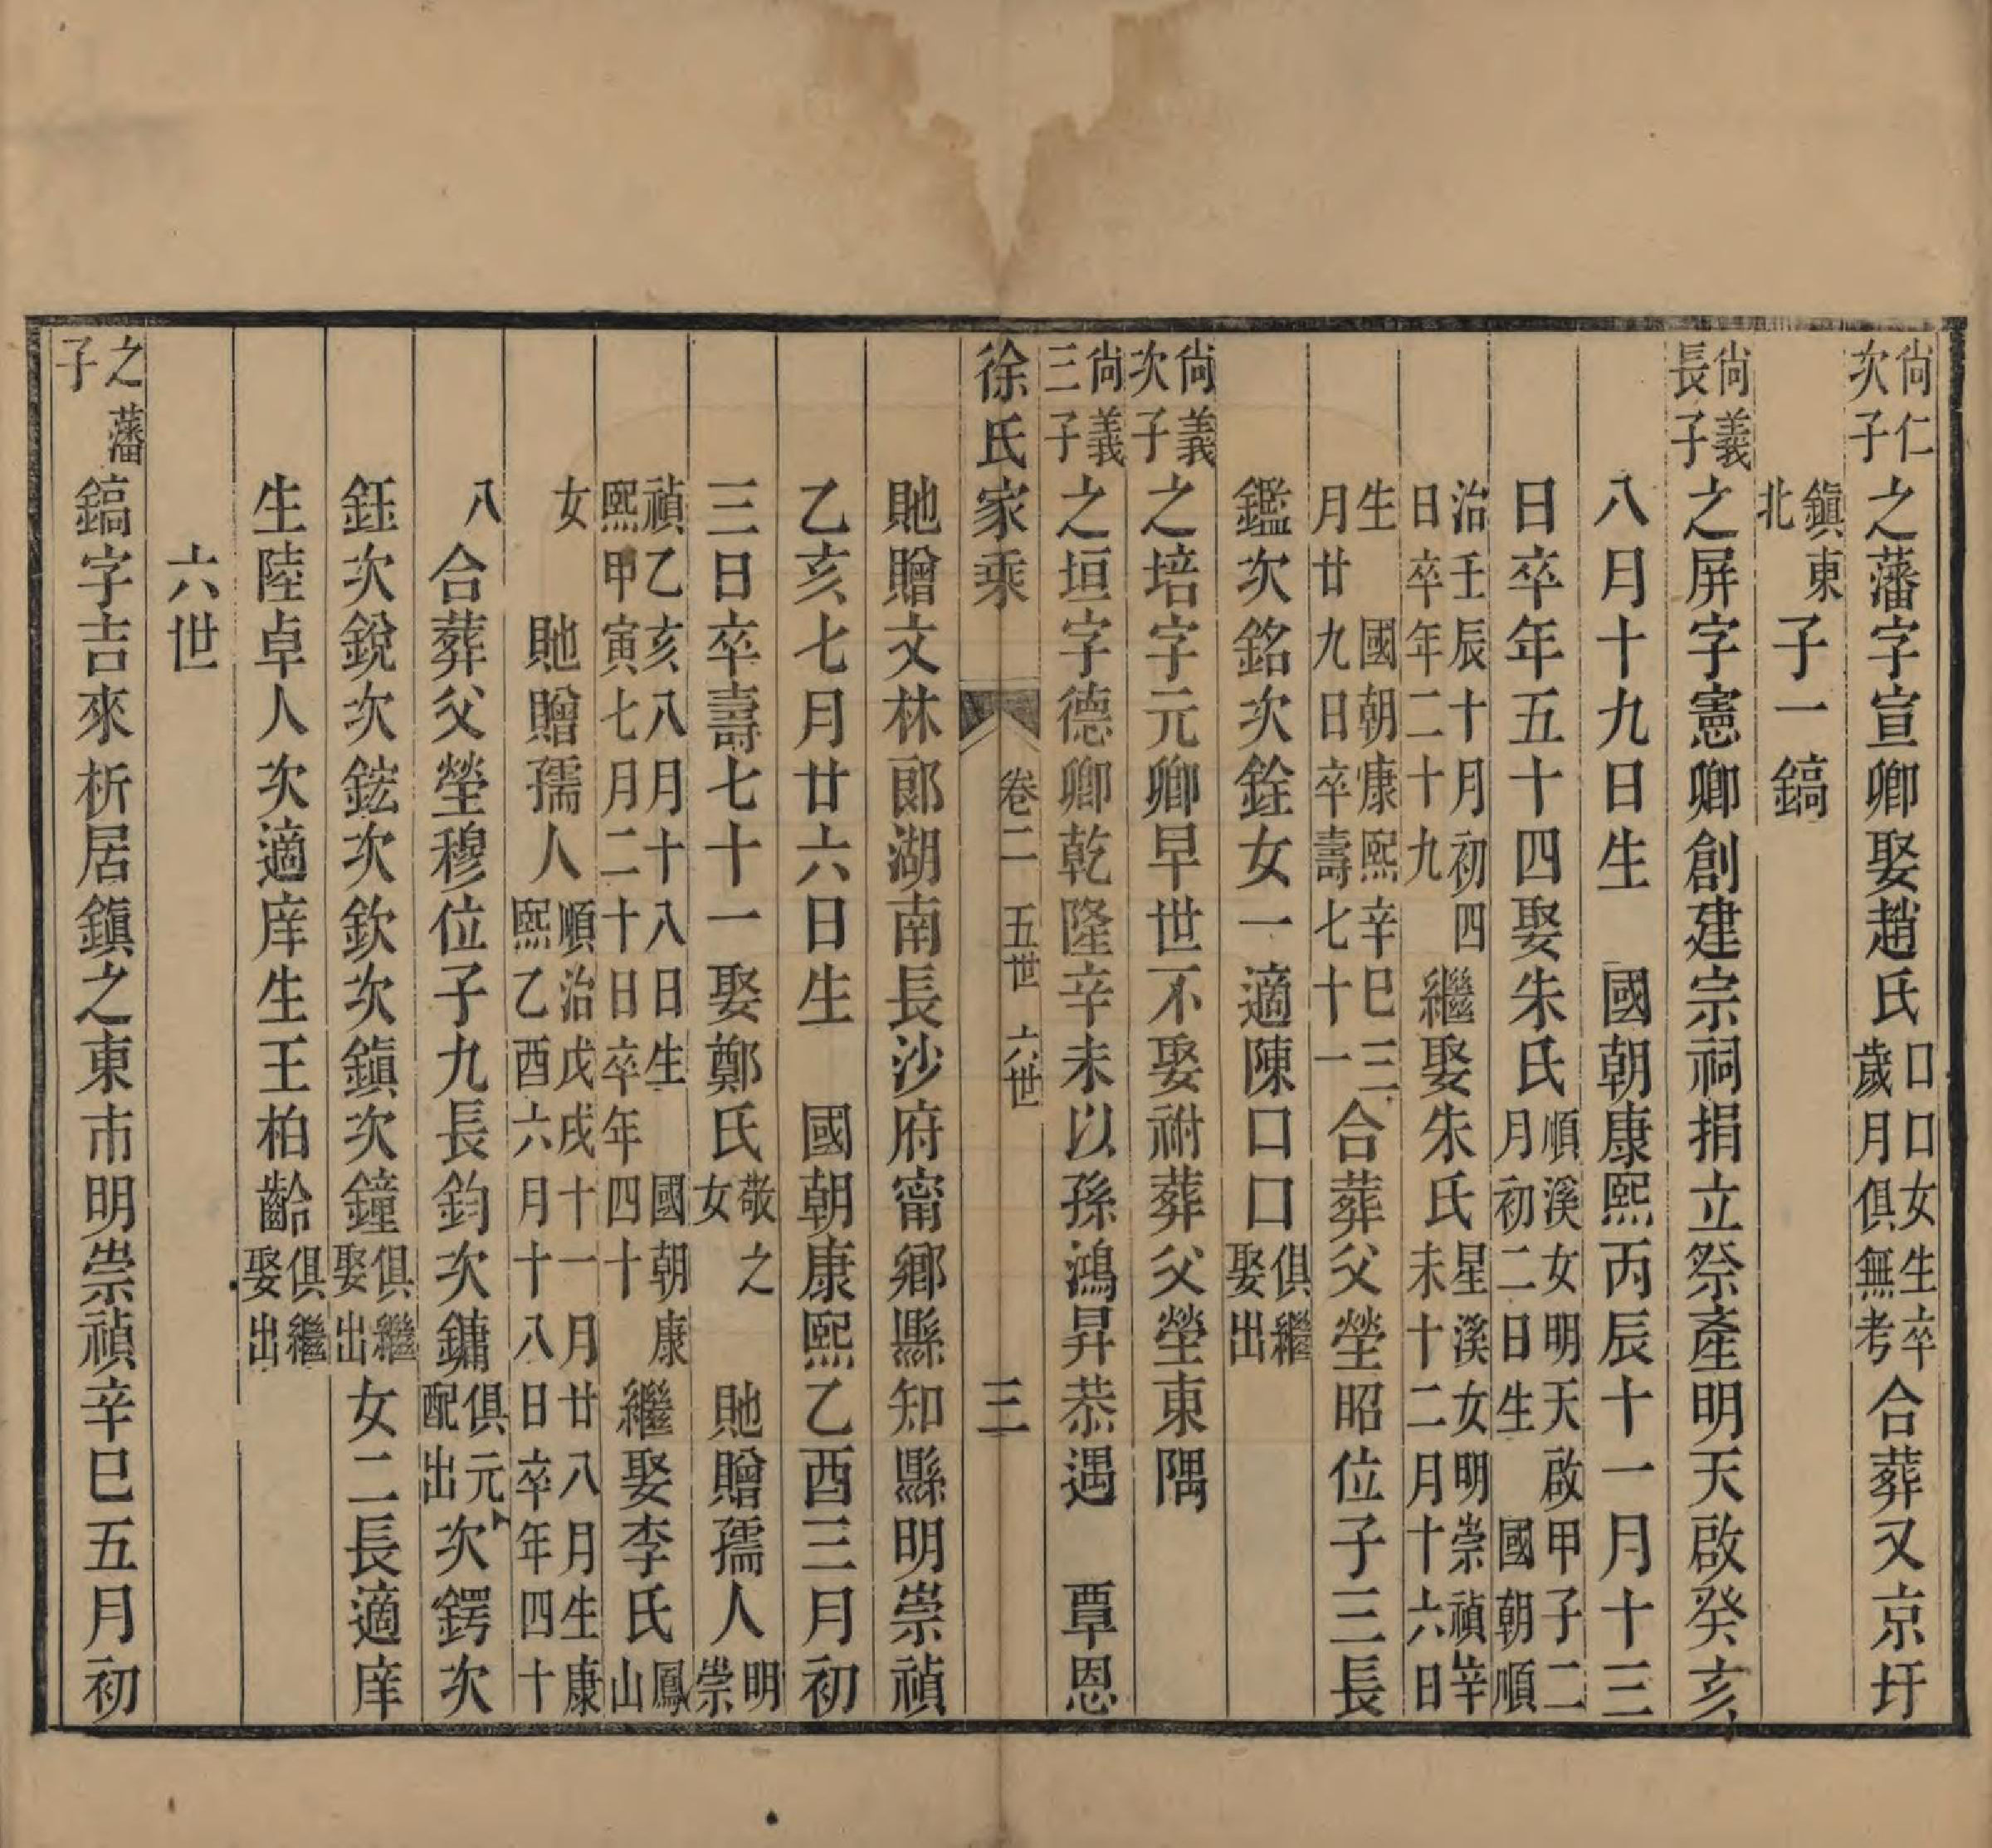 尙仁次子之藩字宣卿娶趙氏口口女生卒歲月俱無考合葬又京圩
鎮東北子一鎬
尙義長子之屏字憲卿創建宗祠捐立祭產明天啟癸亥
八月十九日生　國朝康熙丙辰十一月十三
日卒年五十四娶朱氏順溪女明天啟甲子二月初二日生　國朝順
治壬辰十月初四日卒年二十九繼娶朱氏星溪女明崇禎辛未十二月十六日
生　國朝康熙辛巳三月廿九日卒壽七十一合葬父塋昭位子三長
鑑次銘次銓女一適陳口口俱繼娶出
尙義次子之培字元卿早世不娶祔葬父塋東隅
尙義三子之垣字德卿乾隆辛未以孫鴻昇恭遇　覃恩
徐氏家乘　卷二　五世　六世　三
貤贈文林郎湖南長沙府甯鄉縣知縣明崇禎
乙亥七月廿六日生　國朝康熙乙酉三月初
三日卒壽七十一娶鄭氏敬之女　貤贈孺人明崇
禎乙亥八月十八日生　國朝康熙甲寅七月二十日卒年四十繼娶李氏鳳山
女　貤贈孺人順治戊戌十一月廿八月生康熙乙酉六月十八日卒年四十
八合葬父塋穆位子九長鈞次鏞俱元配出次鍔次
鈺次銳次鋐次欽次鎮次鐘俱繼娶出女二長適庠
生陸卓人次適庠生王柏齡俱繼娶出
六世
之藩子鎬字吉來析居鎮之東市明崇禎辛巳五月初